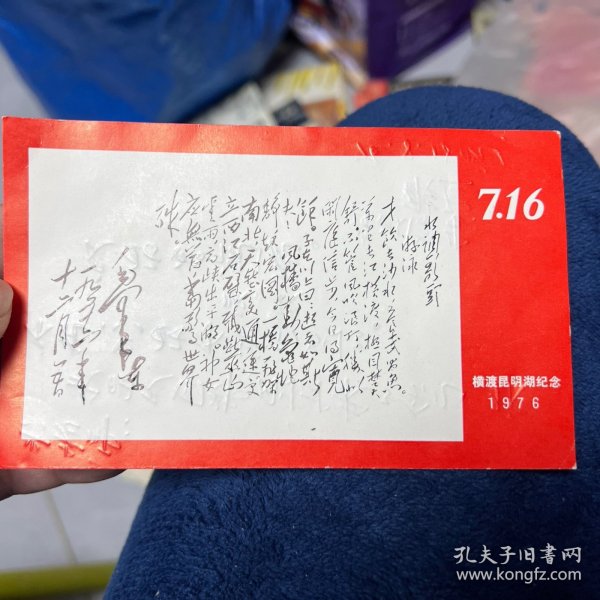 水调歌头
游泳
才饮长沙水，又食武昌鱼。
万里长江横渡，极目楚天
舒。不管风吹浪打，胜似
闲庭信步，今日得宽
馀。子在川上曰：逝者如斯
夫！风樯动，龟蛇
静，起宏图。一桥飞架
南北，天堑变通途。更
立西江石壁，截断巫山
云雨，高峡出平湖。神女
应无恙，当惊世界
殊。
毛泽东
一九五六年
十二月五日
7.16
横渡昆明湖纪念
1976
孔夫子旧书网
www.kongfz.com